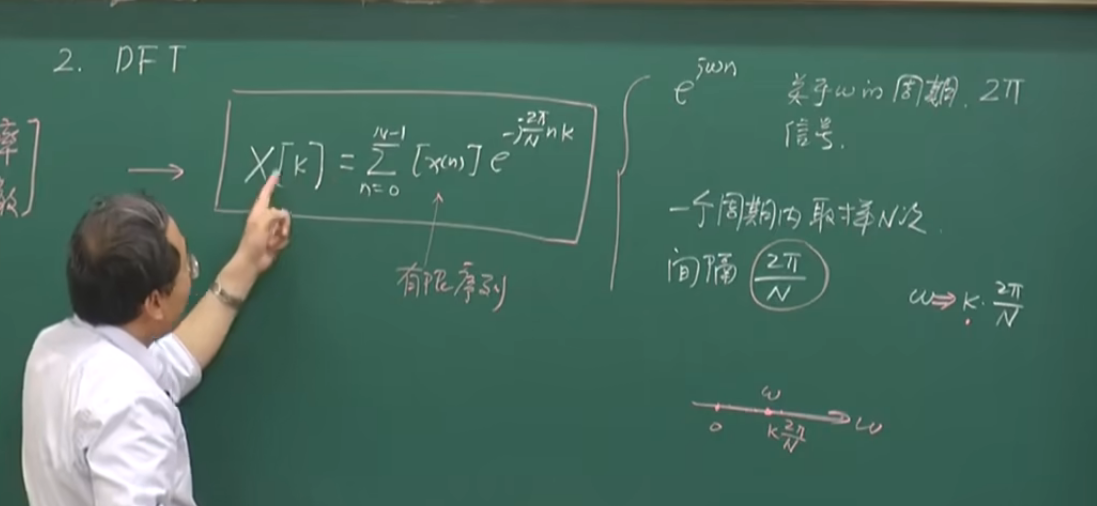 2. DFT
率
数]
→ X[k] = \sum_{n=0}^{N-1} [x(n)] e^{-j\frac{2π}{N}nk}
有限序列
e^{jωn} 关于ω的周期. 2π
信号.
一个周期内取样N次.
间隔 \frac{2π}{N}
ω⇒k·\frac{2π}{N}
ω
0 k\frac{2π}{N} ω